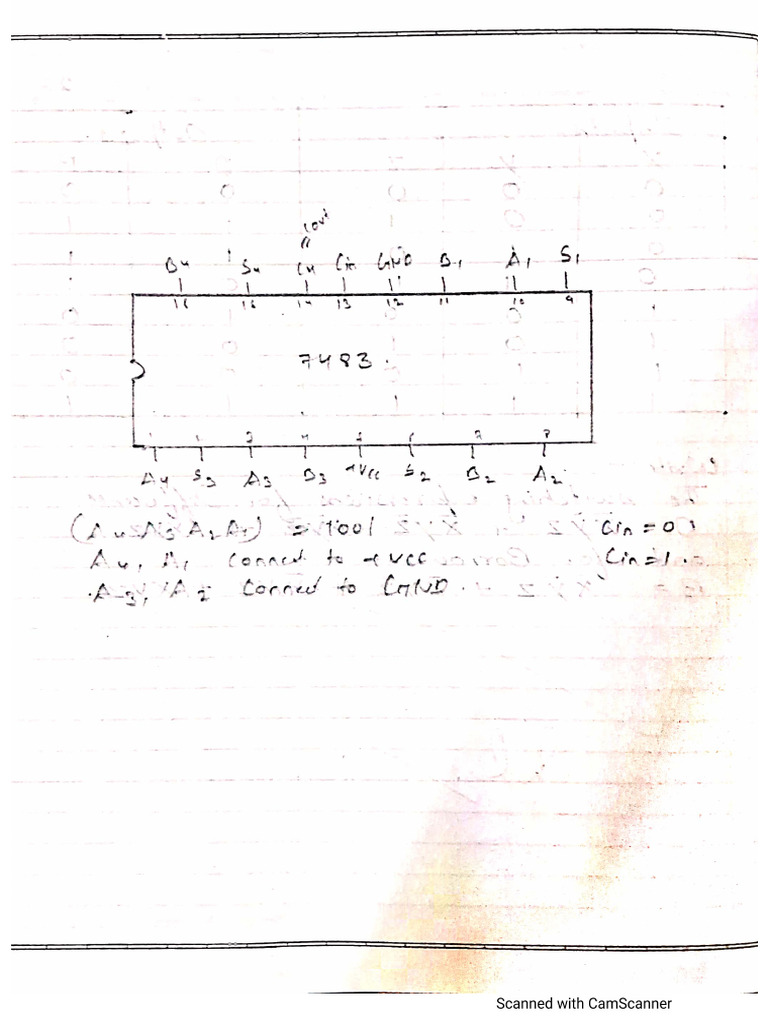 Cout
=
B4 S4 C4 Cin GND B1 A1 S1
16 15 14 13 12 11 10 9
7483.
1 2 3 4 5 6 7 8
A4 S3 A3 B3 +VCC S2 B2 A2
(A4 A3 A2 A1) = 1001 Cin = 0
A4, A1 Conned to +VCC Cin = 1.
A3, A2 Conned to GND.
Scanned with CamScanner